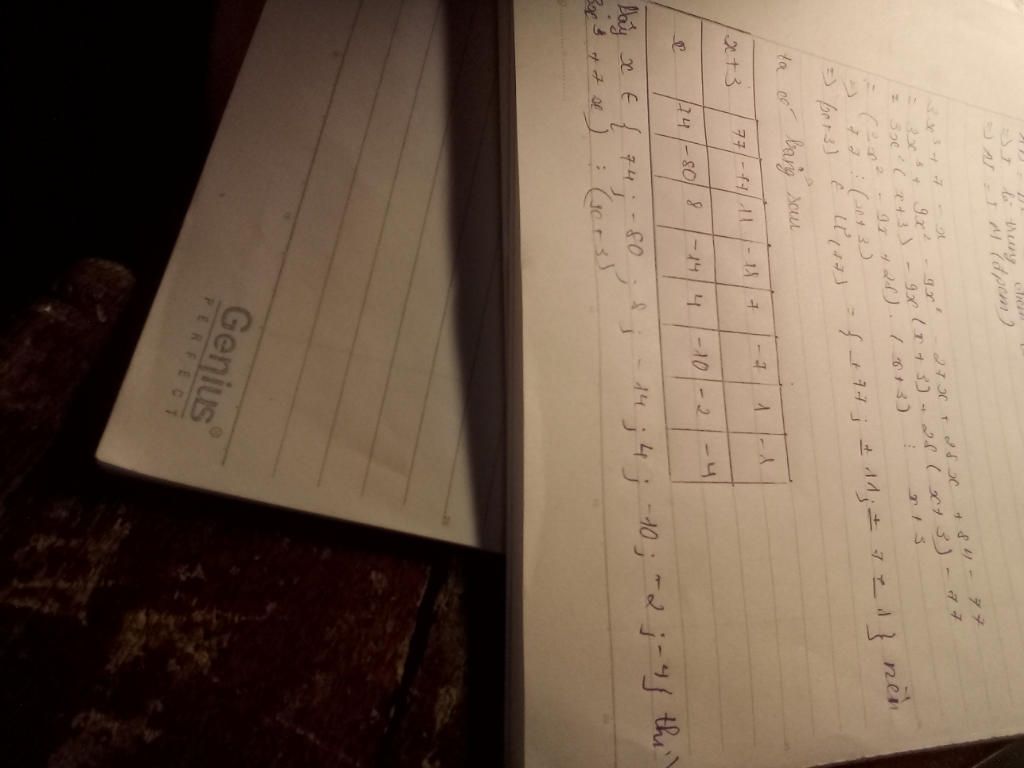 =) A1 = 5 A1 (đpcm)
3x³ + 7 - x
= 3x³ + 9x² - 9x² - 27x + 28x + 84 - 77
= 3x² (x+3) - 9x (x+3) + 28 (x+3) - 77
= (3x² - 9x + 28) . (x+3) : x+3
=) 77 : (x+3)
=) (x+3) ∈ Ư(77) = { ±77; ±11; ±7 ± 1} nên
ta có bảng sau
x+3 77 -77 11 -11 7 -7 1 -1
x 74 -80 8 -14 4 -10 -2 -4
Vậy x ∈ { 74; -80; 8; -14; 4; -10; -2; -4} thì
3x³ + 7x) : (x+3)
Genius®
PERFECT